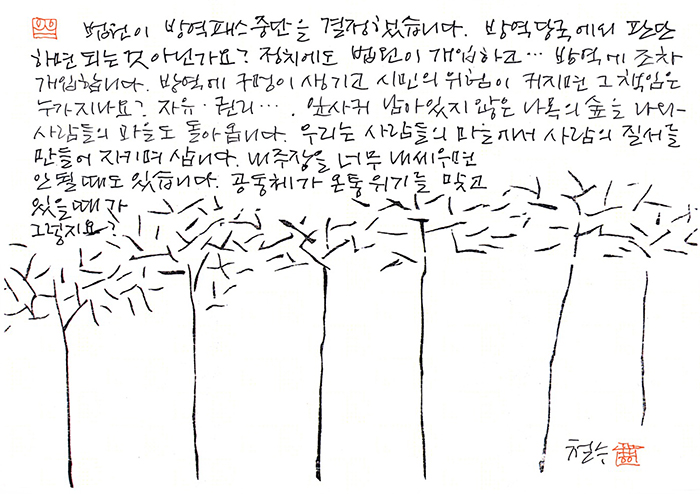 법원이 방역패스 중단을 결정하였습니다. 방역당국에의 판단
하면 되는 것 아닌가요? 정치에도 법원이 개입하고… 방역에 조차
개입합니다. 방역에 구멍이 생기고 시민의 위험이 커지면 그 책임은
누가 지나요? 자유·권리…. 잎사귀 남아있지 않은 나목의 숲을 나와
사람들의 마을로 돌아옵니다. 우리는 사람들의 마을에서 사람의 질서를
만들어 지키며 삽니다. 내 주장을 너무 내세우면
안될 때도 있습니다. 공동체가 온통 위기를 맞고
있을 때가
그렇지요?
철수